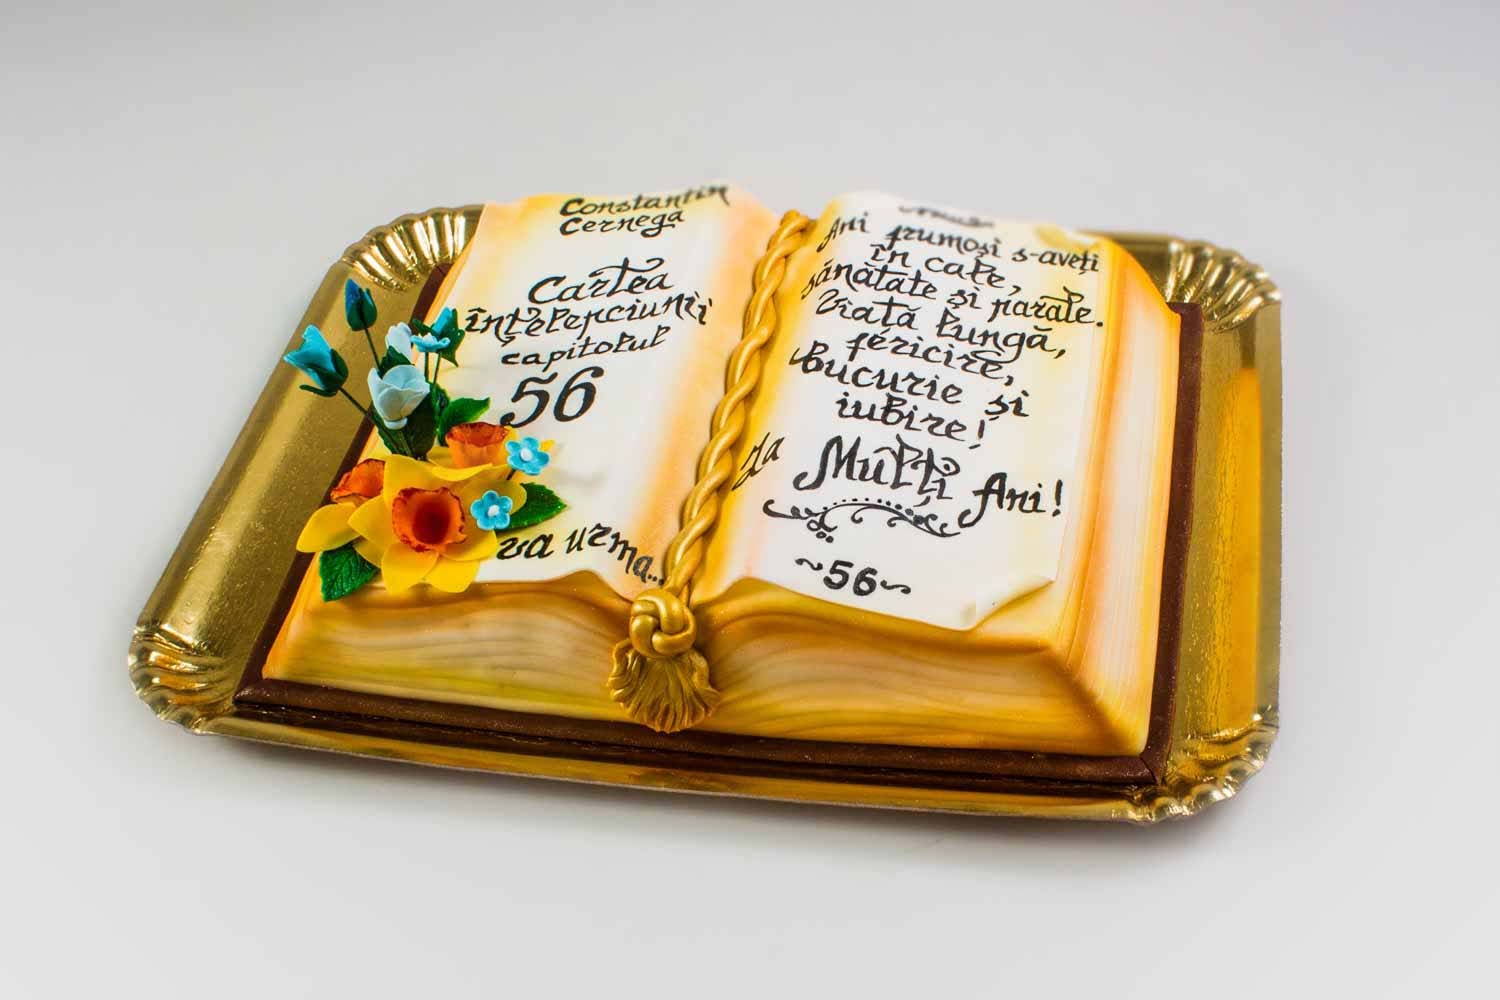 Constantin
Cernega
Cartea
înțelepciunii
capitolul
56
va urma...
Ani frumoși s-aveți
în cale,
sănătate și parale.
Viață lungă,
fericire,
bucurie și
iubire!
La Mulți Ani!
~56~